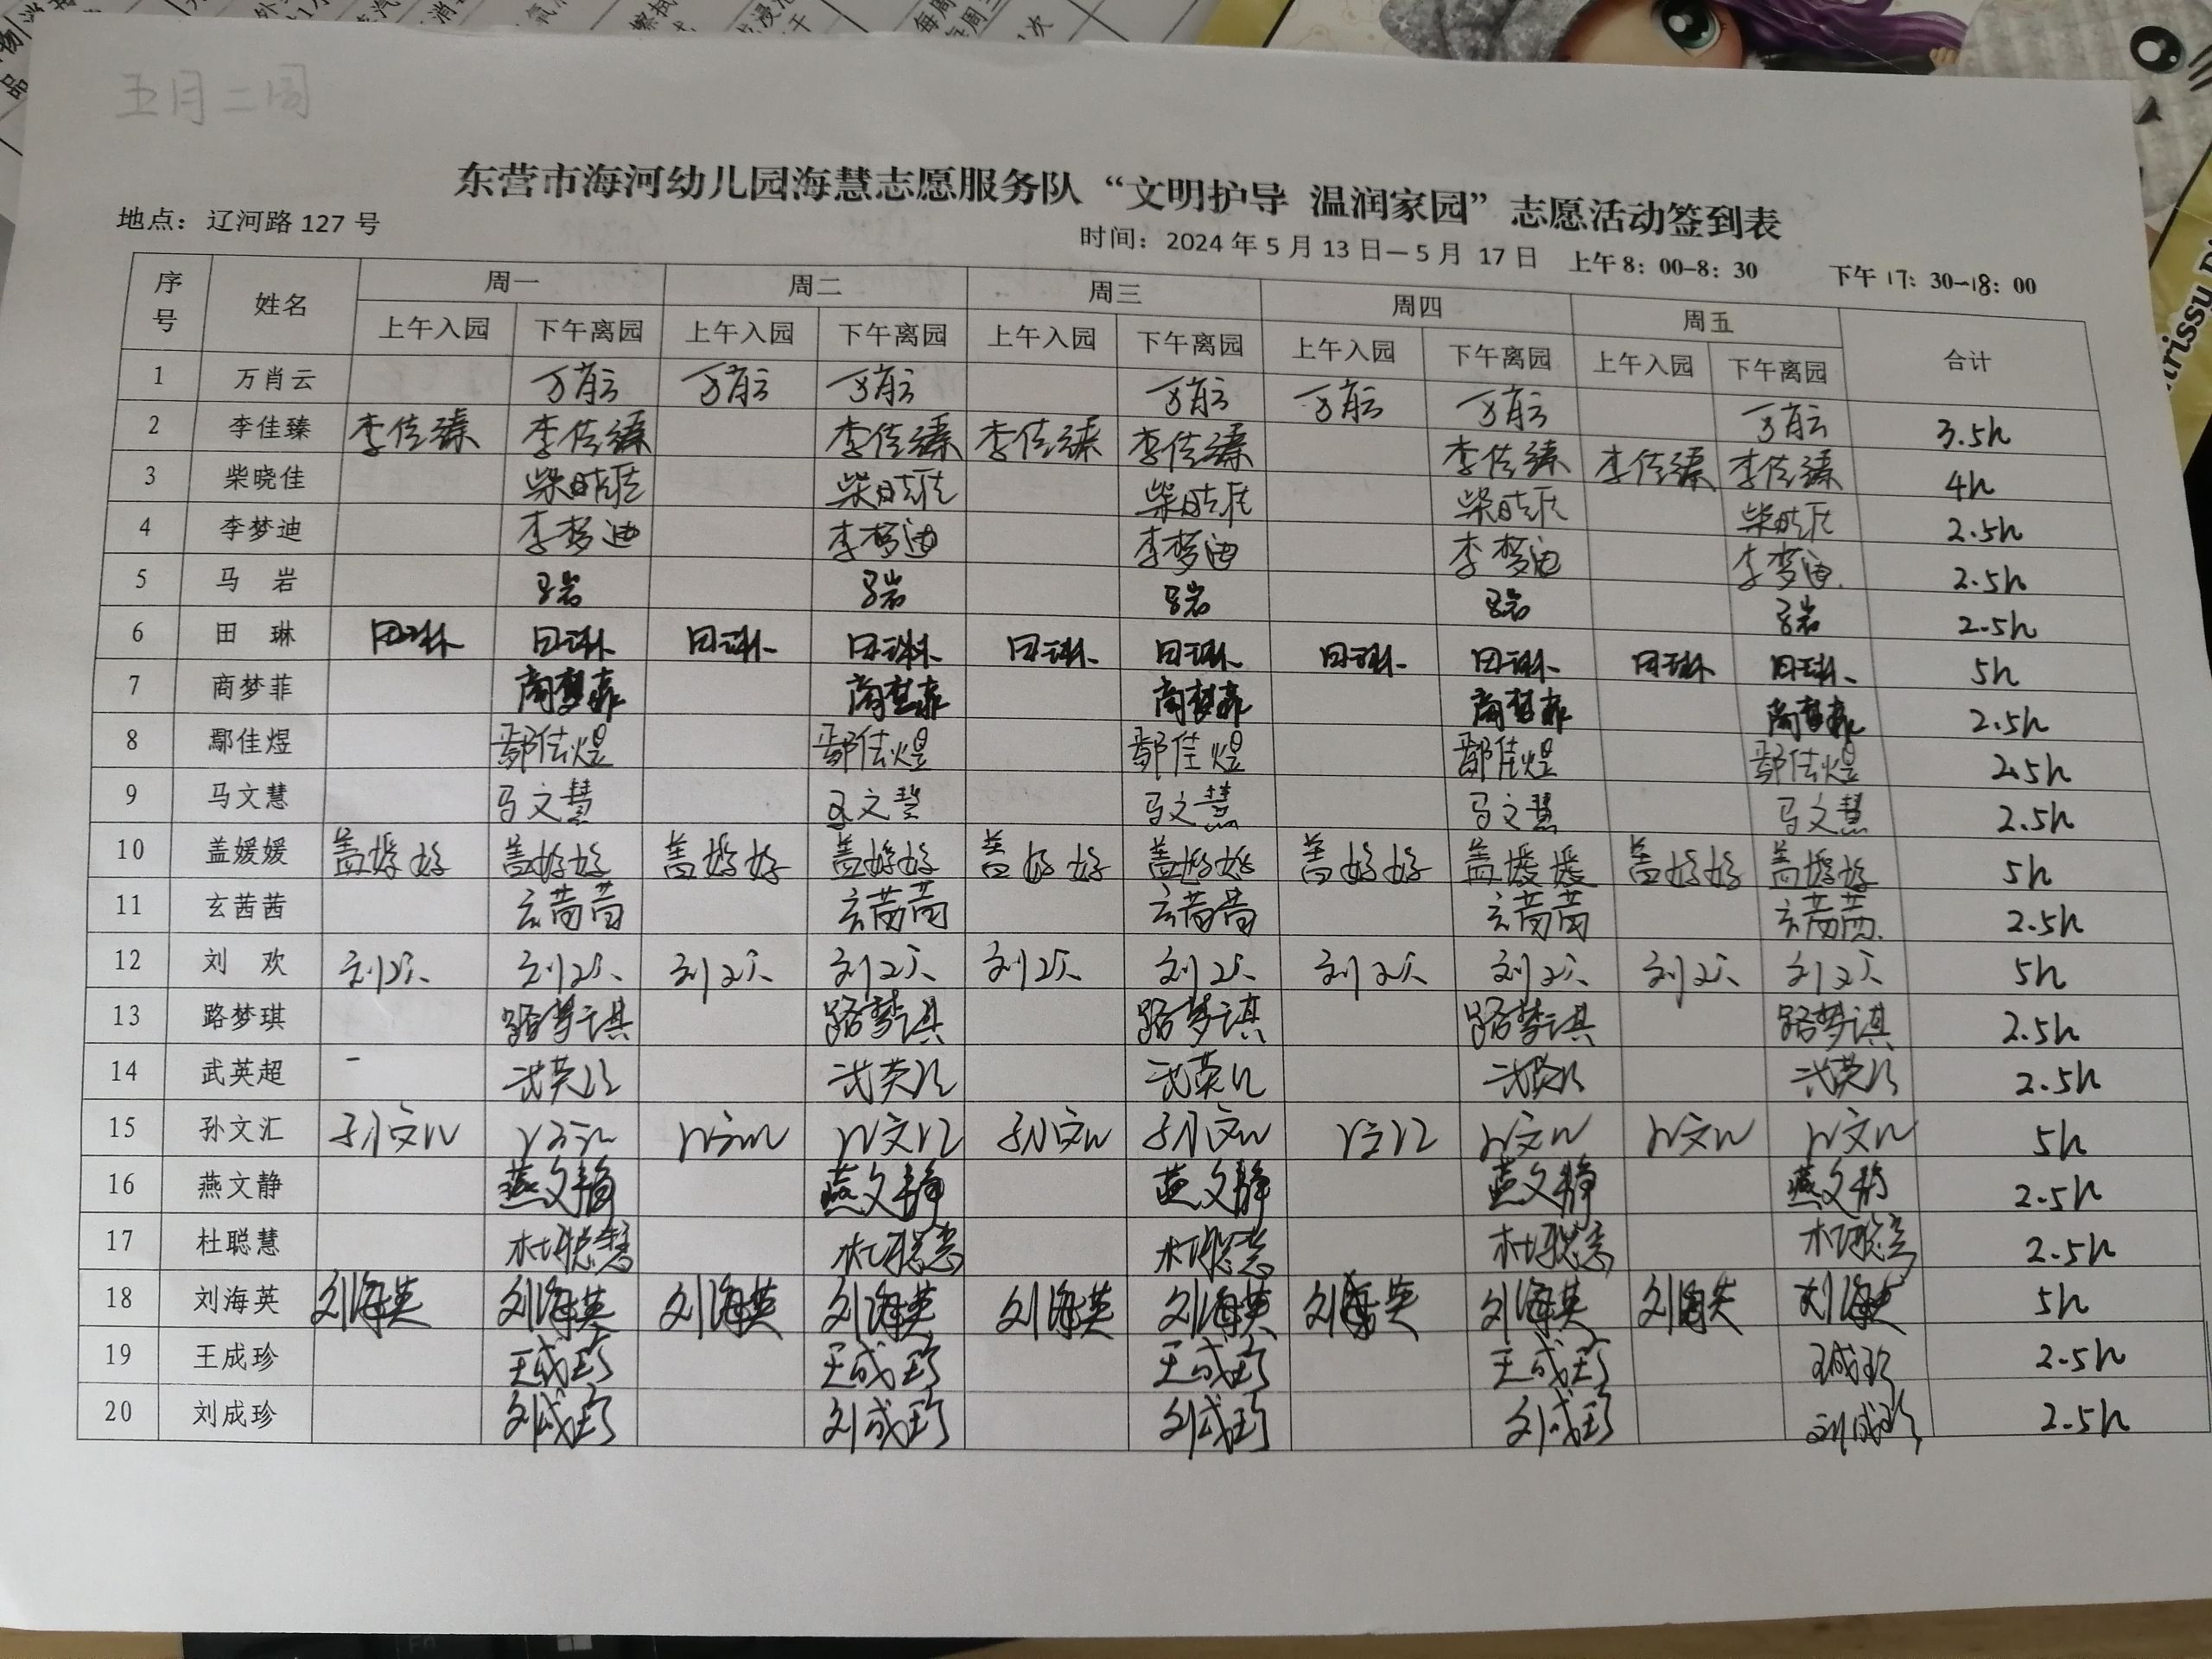 五月二周
东营市海河幼儿园海慧志愿服务队“文明护导 温润家园”志愿活动签到表
地点：辽河路 127 号 时间：2024 年 5 月 13 日—5 月 17 日 上午 8：00-8：30 下午 17：30-18：00
序号 姓名 周一 周二 周三 周四 周五 合计
上午入园 下午离园 上午入园 下午离园 上午入园 下午离园 上午入园 下午离园 上午入园 下午离园
1 万肖云 万肖云 万肖云 万肖云 万肖云 万肖云 万肖云 万肖云 3.5h
2 李佳臻 李佳臻 李佳臻 李佳臻 李佳臻 李佳臻 李佳臻 李佳臻 李佳臻 4h
3 柴晓佳 柴晓佳 柴晓佳 柴晓佳 柴晓佳 柴晓佳 2.5h
4 李梦迪 李梦迪 李梦迪 李梦迪 李梦迪 李梦迪 2.5h
5 马 岩 马岩 马岩 马岩 马岩 马岩 2.5h
6 田 琳 田琳 田琳 田琳 田琳 田琳 田琳 田琳 田琳 田琳 田琳 5h
7 商梦菲 商梦菲 商梦菲 商梦菲 商梦菲 商梦菲 2.5h
8 鄢佳煜 鄢佳煜 鄢佳煜 鄢佳煜 鄢佳煜 鄢佳煜 2.5h
9 马文慧 马文慧 马文慧 马文慧 马文慧 马文慧 2.5h
10 盖媛媛 盖媛媛 盖媛媛 盖媛媛 盖媛媛 盖媛媛 盖媛媛 盖媛媛 盖媛媛 盖媛媛 盖媛媛 5h
11 玄茜茜 玄茜茜 玄茜茜 玄茜茜 玄茜茜 玄茜茜 2.5h
12 刘 欢 刘欢 刘欢 刘欢 刘欢 刘欢 刘欢 刘欢 刘欢 刘欢 刘欢 5h
13 路梦琪 路梦琪 路梦琪 路梦琪 路梦琪 路梦琪 2.5h
14 武英超 武英超 武英超 武英超 武英超 武英超 2.5h
15 孙文汇 孙文汇 孙文汇 孙文汇 孙文汇 孙文汇 孙文汇 孙文汇 孙文汇 孙文汇 孙文汇 5h
16 燕文静 燕文静 燕文静 燕文静 燕文静 燕文静 2.5h
17 杜聪慧 杜聪慧 杜聪慧 杜聪慧 杜聪慧 杜聪慧 2.5h
18 刘海英 刘海英 刘海英 刘海英 刘海英 刘海英 刘海英 刘海英 刘海英 刘海英 刘海英 5h
19 王成珍 王成珍 王成珍 王成珍 王成珍 王成珍 2.5h
20 刘成珍 刘成珍 刘成珍 刘成珍 刘成珍 刘成珍 2.5h